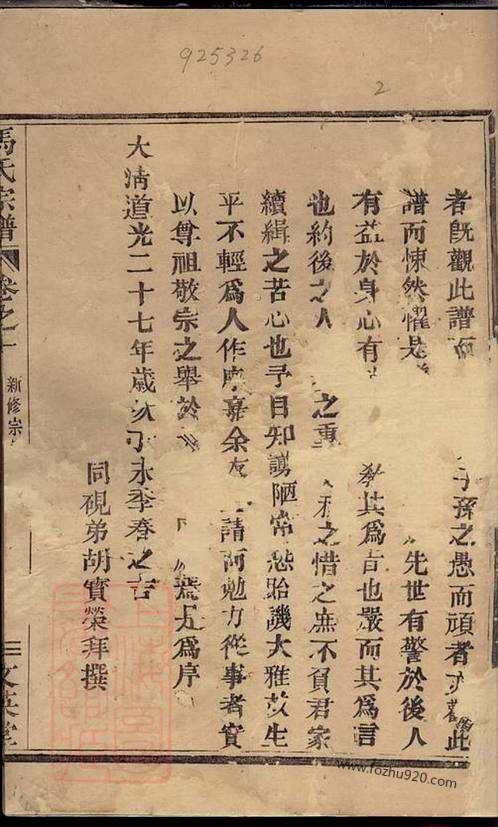 925326
2
者既觀此譜而 子孫之愚而頑者亦 此
譜而悚然懼是 先世有警於後人
有益於身心有 教其爲旨也嚴而其爲言
也約後之人 之重 之惜之庶不負君家
續緝之苦心也予自知謭陋常恐貽譏大雅故生
平不輕爲人作序嘉余友 請而勉力從事者實
以尊祖敬宗之舉於 爲序
大清道光二十七年歲次丁未季春之吉
同硯弟胡實榮拜撰
馬氏宗譜
卷之一
新修宗
三
文英堂
www.fozhu920.com